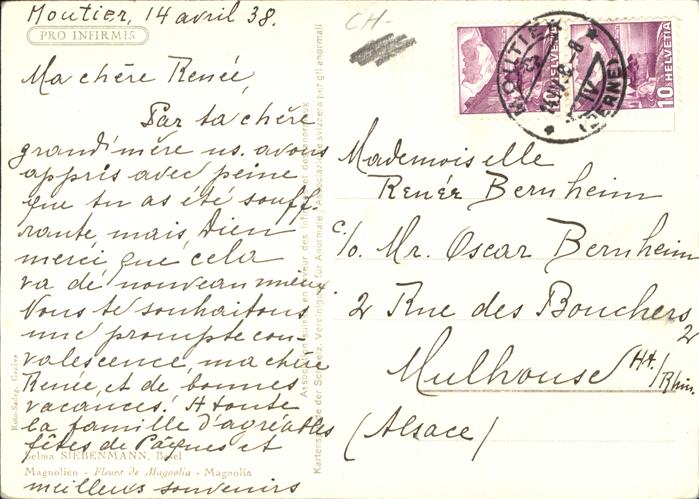 Moutier, 14 avril 38.
PRO INFIRMIS
Ma chère Renée,
Par ta chère
grand'mère ns. avons
appris avec peine
que tu as été souff-
rante mais, Dieu
merci, que cela
va de nouveau mieux
Nous te souhaitons
une prompte con-
valescence, ma chère
Renée, et de bonnes
vacances! A toute
la famille d'agréables
fêtes de Pâques et
meilleurs souvenirs
Selma SIEBENMANN, Basel
Magnolien - Fleurs de Magnolia - Magnolia
Roto-Sadag, Genève
Kartenspende der Schweiz. Vereinigung für Anormale / Associazione svizzera per gli anormali
CH-
HELVETIA
10 HELVETIA
MOUTIER
(BERNE)
Mademoiselle
Renée Bernheim
c/o. Mr. Oscar Bernheim
2 Rue des Bouchers
2
Mulhouse Ht./Rhin.
(Alsace)